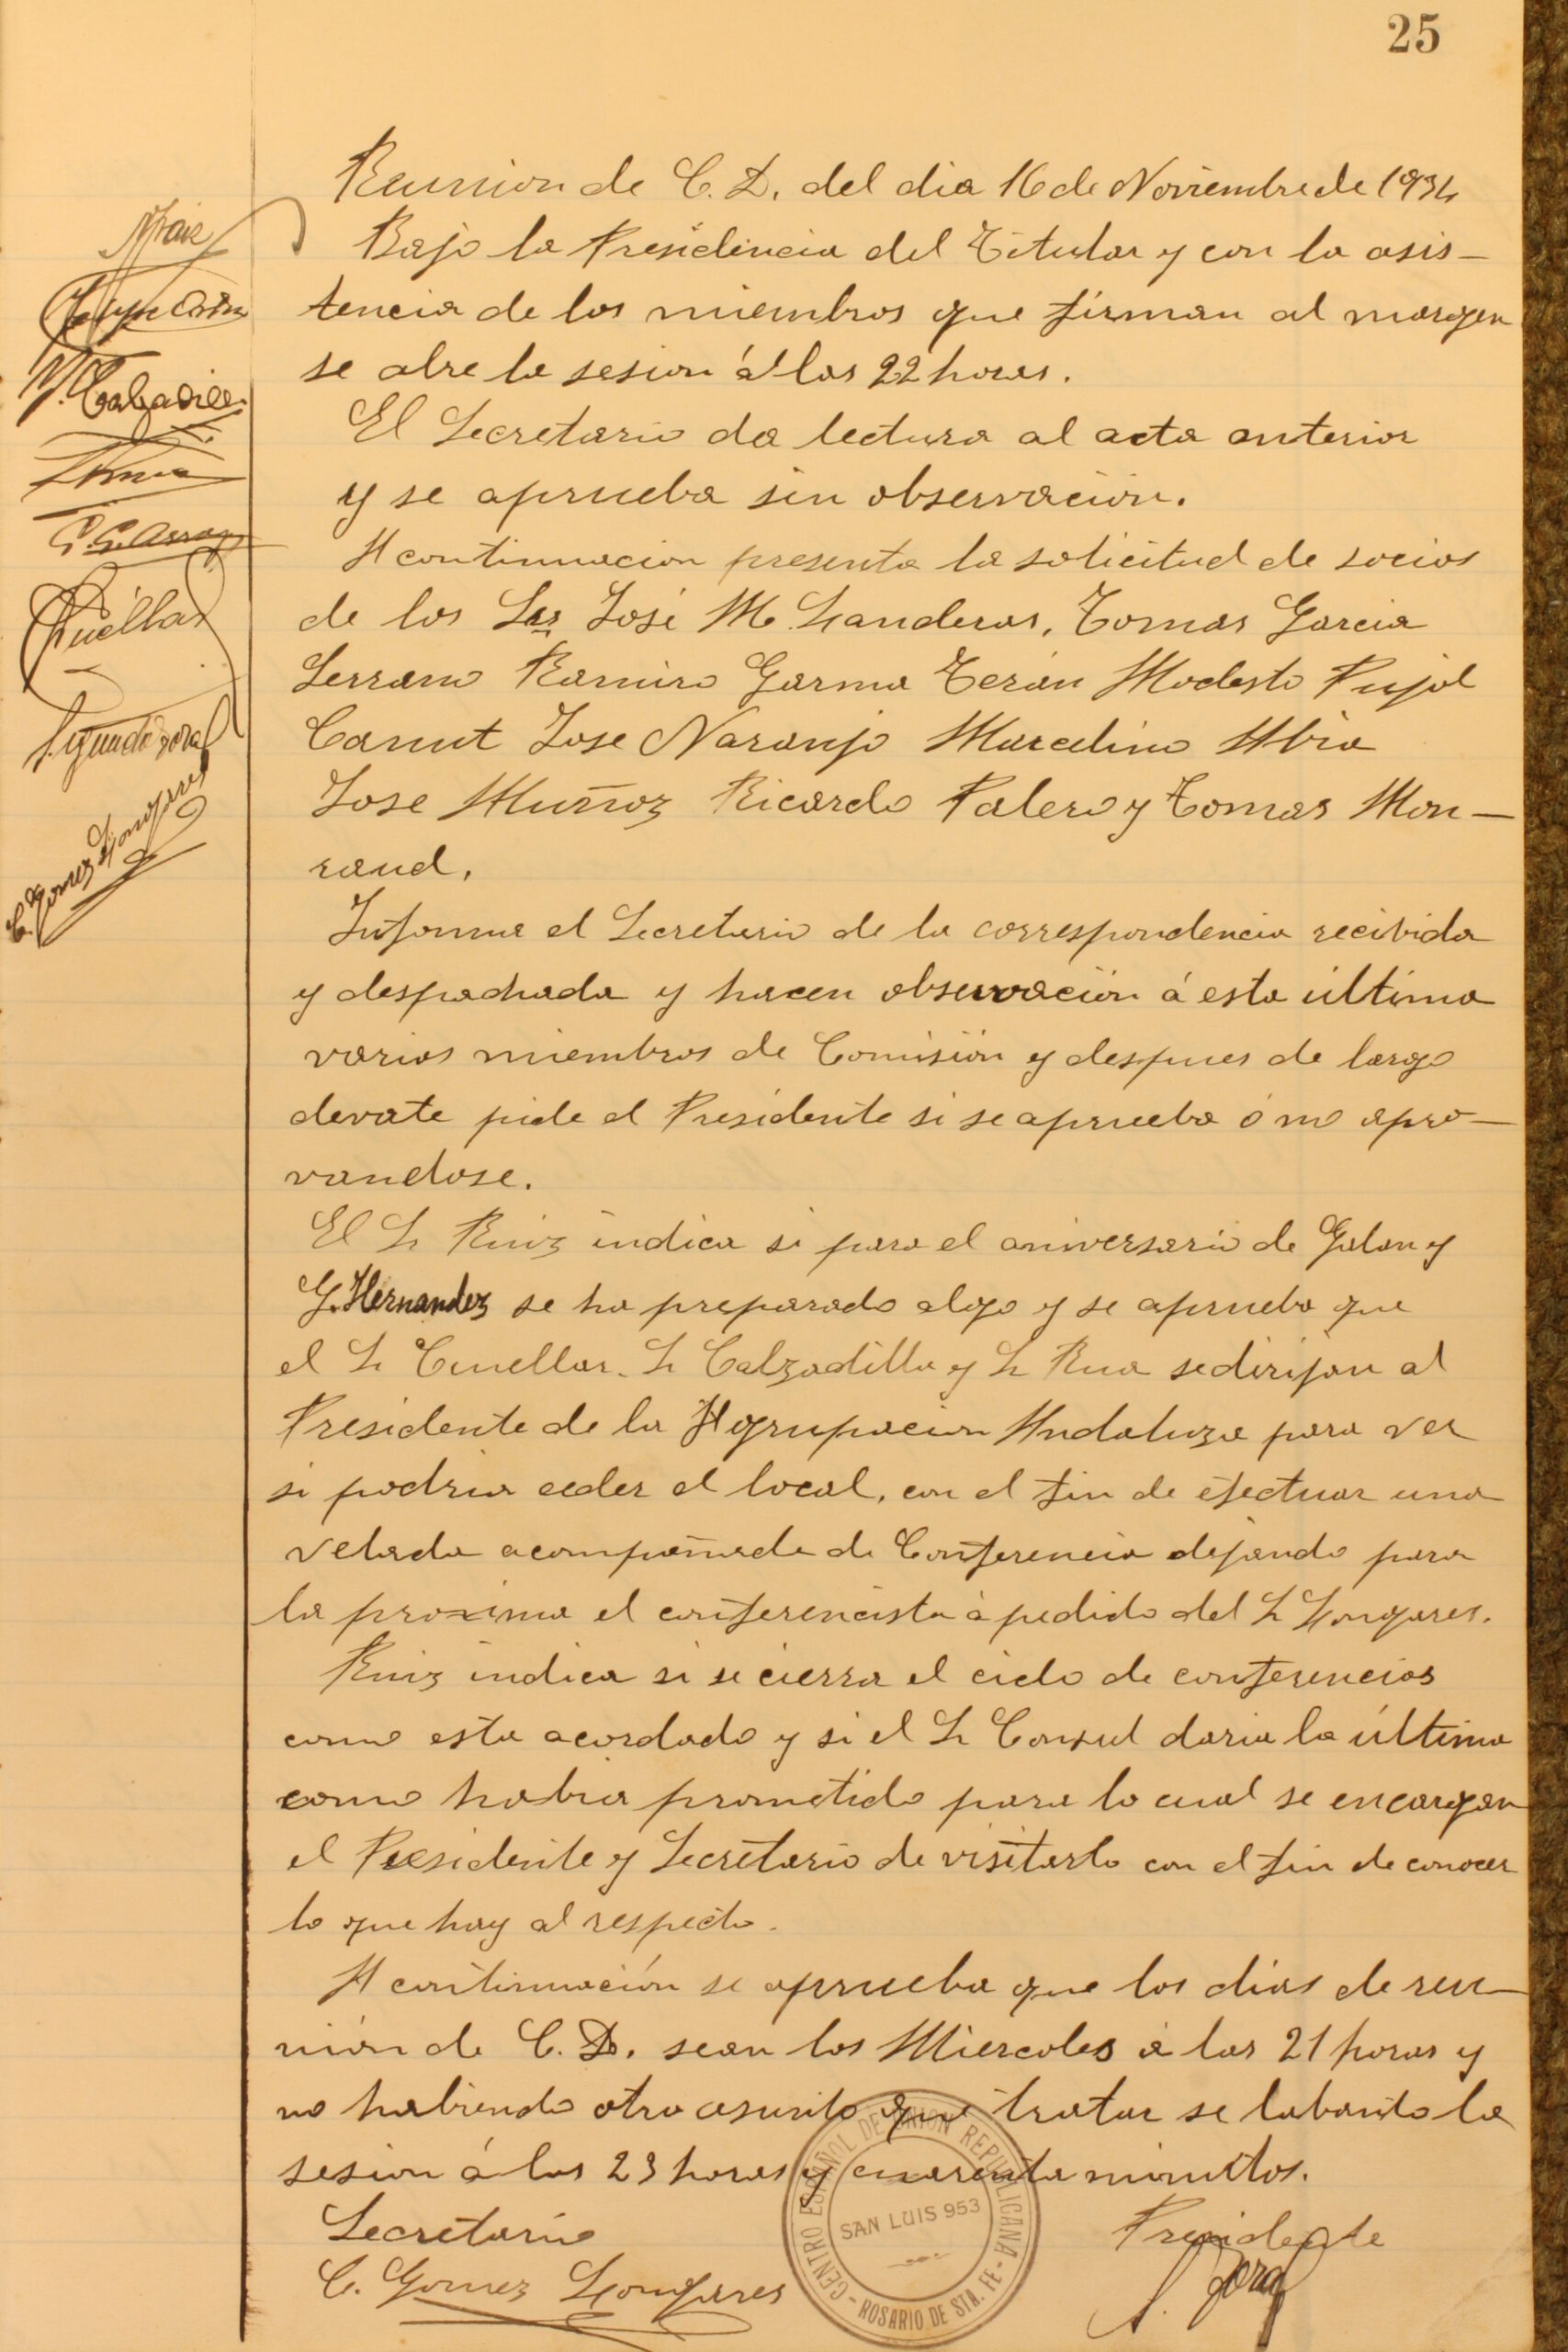 25
Reunion de C. D. del dia 16 de Noviembre de 1934
Bajo la Presidencia del Titular y con la asis-
tencia de los miembros que firman al margen
se abre la sesion á las 22 horas.
El Secretario da lectura al acta anterior
y se aprueba sin observación.
A continuacion presenta la solicitud de socios
de los Srs José M Landeras, Tomas Garcia
Serrano Ramiro Garma Terán Modesto Pujol
Canut Jose Naranjo Marcelino Abia
Jose Muñoz Ricardo Palero y Tomas Mon-
raud.
Informa el Secretario de la correspondencia recibida
y despachada y hacen observación á esta última
varios miembros de Comisión y despues de largo
devate pide el Presidente si se aprueba ó no apro-
vandose.
El Sr Ruiz indica si para el aniversario de Galan y
G. Hernandez se ha preparado algo y se aprueba que
el Sr Cuellar. Sr Calzadilla y Sr Rua se dirijan al
Presidente de la Agrupacion Andaluza para ver
si podria ceder el local, con el fin de efectuar una
velada acompañada de Conferencia dejando para
la proxima el conferencista á pedido del Sr Longares.
Ruiz indica si se cierra el ciclo de conferencias
como esta acordado y si el Sr Consul daria la última
como habia prometido para lo cual se encargan
el Presidente y Secretario de visitarlo con el fin de conocer
lo que hay al respecto.
A continuación se aprueba que los dias de reu-
nión de C. D. sean los Miercoles á las 21 horas y
no habiendo otro asunto que tratar se labanto la
sesion á las 23 horas y cuarenta minutos.
Secretario
Presidente
C. Gomez Longares
S. Soral
M. Calzadilla
Cuéllar
Segundo Soral
C. Gomez Longares
CENTRO ESPAÑOL DE UNION REPUBLICANA
SAN LUIS 953
- ROSARIO DE STA. FE -